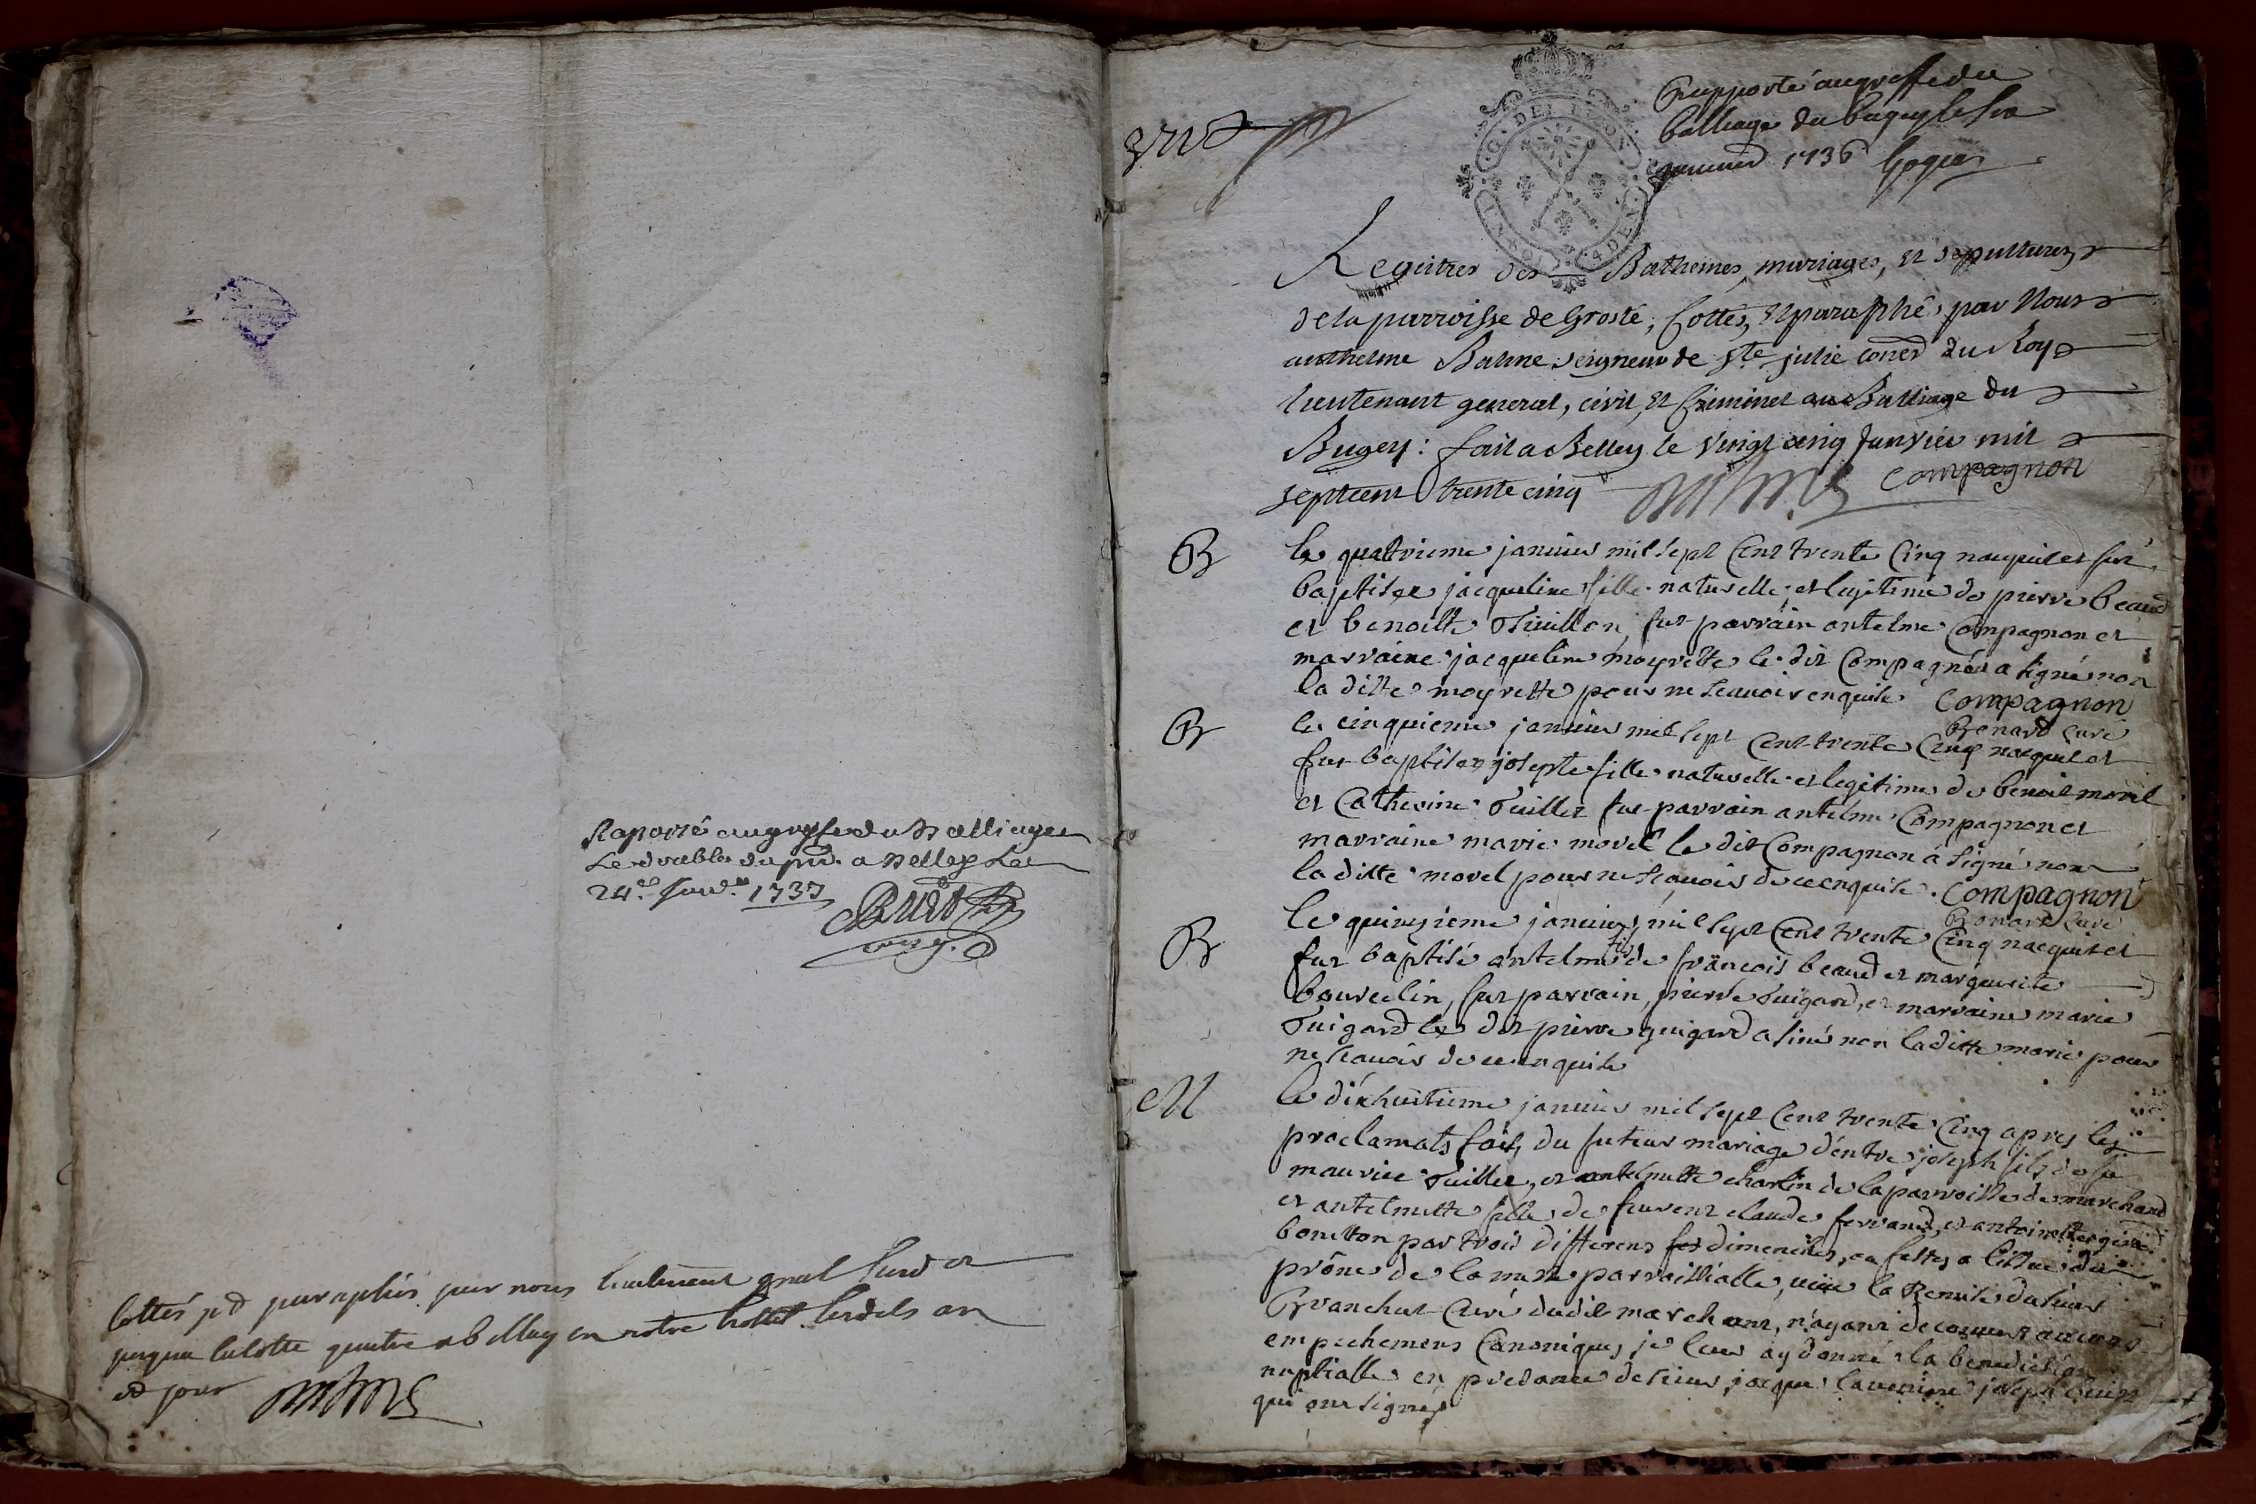 Raporté au greffe du Balliage
Le double du pnt. a Belley Le
24e. Janv. 1737
Cottés et paraphés par nous lieutenant gnal susd et
jusqua la cotte quatre a Belley en notre hottel lesdits an
et jour
Rapporté au greffe du
balliage du bugey le six
janvier 1736
G. DE LYON
Registres des Bathemes, mariages, et sepultures
de la parroisse de Groslé, Cottés, et paraphé par Nous
anthelme Balme seigneur de Ste julie coner du Roy
lieutenant general, civil, et Criminel au Balliage du
Bugey : fait a Belley le vingt cinq Janvier mil
septcent trente cinq
Compagnon
B
le quatrieme janvier mil sept Cent trente Cinq naquit et fut
baptisee jacqueline fille naturelle et legitime de pierre beaud
et benoitte Guillon, fut parrain antelme Compagnon et
marraine jacqueline moyrette le dit Compagnon a signé non
la ditte moyrette pour ne scavoir enquise Compagnon
Bonard curé
B
le cinquieme janvier mil sept Cent trente Cinq nacquit et
fut baptisee josepte fille naturelle et legitime de benoit morel
et Catherine Guillet fut parrain antelme Compagnon et
marraine marie morel le dit Compagnon a signé non
la ditte morel pour ne scavoir de ce enquise. Compagnon
Bonard curé
B
le quinzieme janvier mil sept Cent trente Cinq nacquit et
fut baptisé antelme fils de françois beaud et marguerite
bourcelin, fut parrain, pierre Guigard, et marraine marie
Guigard le dit pierre guigard a siné non laditte marie pour
ne scavoir de ce enquise
M
le dixhuitieme janvier mil sept Cent trente Cinq apres les
proclamats fait, du futeur mariage d'entre joseph fils de fû
maurice Guillet, et antelmette charlin de la parroisse de marchand
et antelmette fille de claude ferrand, et antoinette
bonetton par trois differens dimenches, ou festes a lissue du
prône de la messe parroissialle, vüe la Remise du sieur
Branchut Curé dudit marchant, n'ayant decouvert aucuns
empechemens Canoniques je leur ay donné la benediction
nuptialle en presance de sieur jacque joseph
qui ont signés